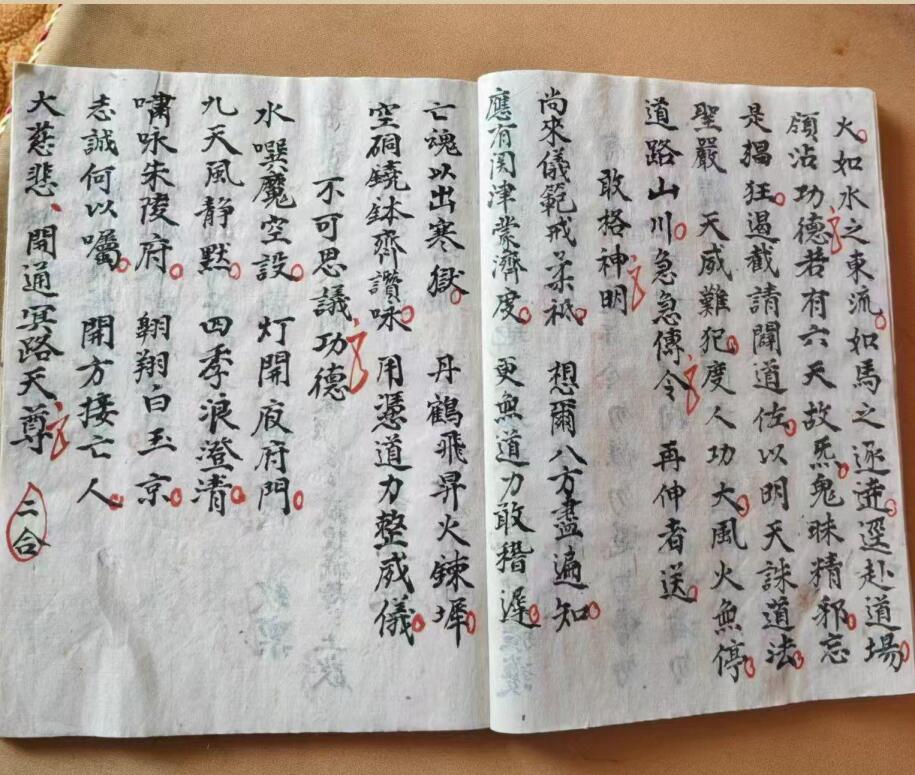 火如水之東流如馬之逐逰逕赴道場
頒沾功德若有六天故炁鬼昧精邪忘
是猖狂遏截請闢道佐以明天誅道法
聖嚴 天威難犯度人功大風火無停
道路山川急急傳令 再伸者送
敢格神明
尚來儀範戒柔祗 想爾八方盡遍知
應有関津業濟度 更無道力敢稽遲
亡魂以出寒獄 丹鶴飛昇火鍊墀
空硐鐃鉢齊讚咏 用憑道力整威儀
不可思議功德
水噀魔空設 灯開夜府門
九天風静默 四季浪澄清
嘯咏朱陵府 翱翔白玉京
志誠何以囑 開方接亡人
大慈悲 開通冥路天尊 二合